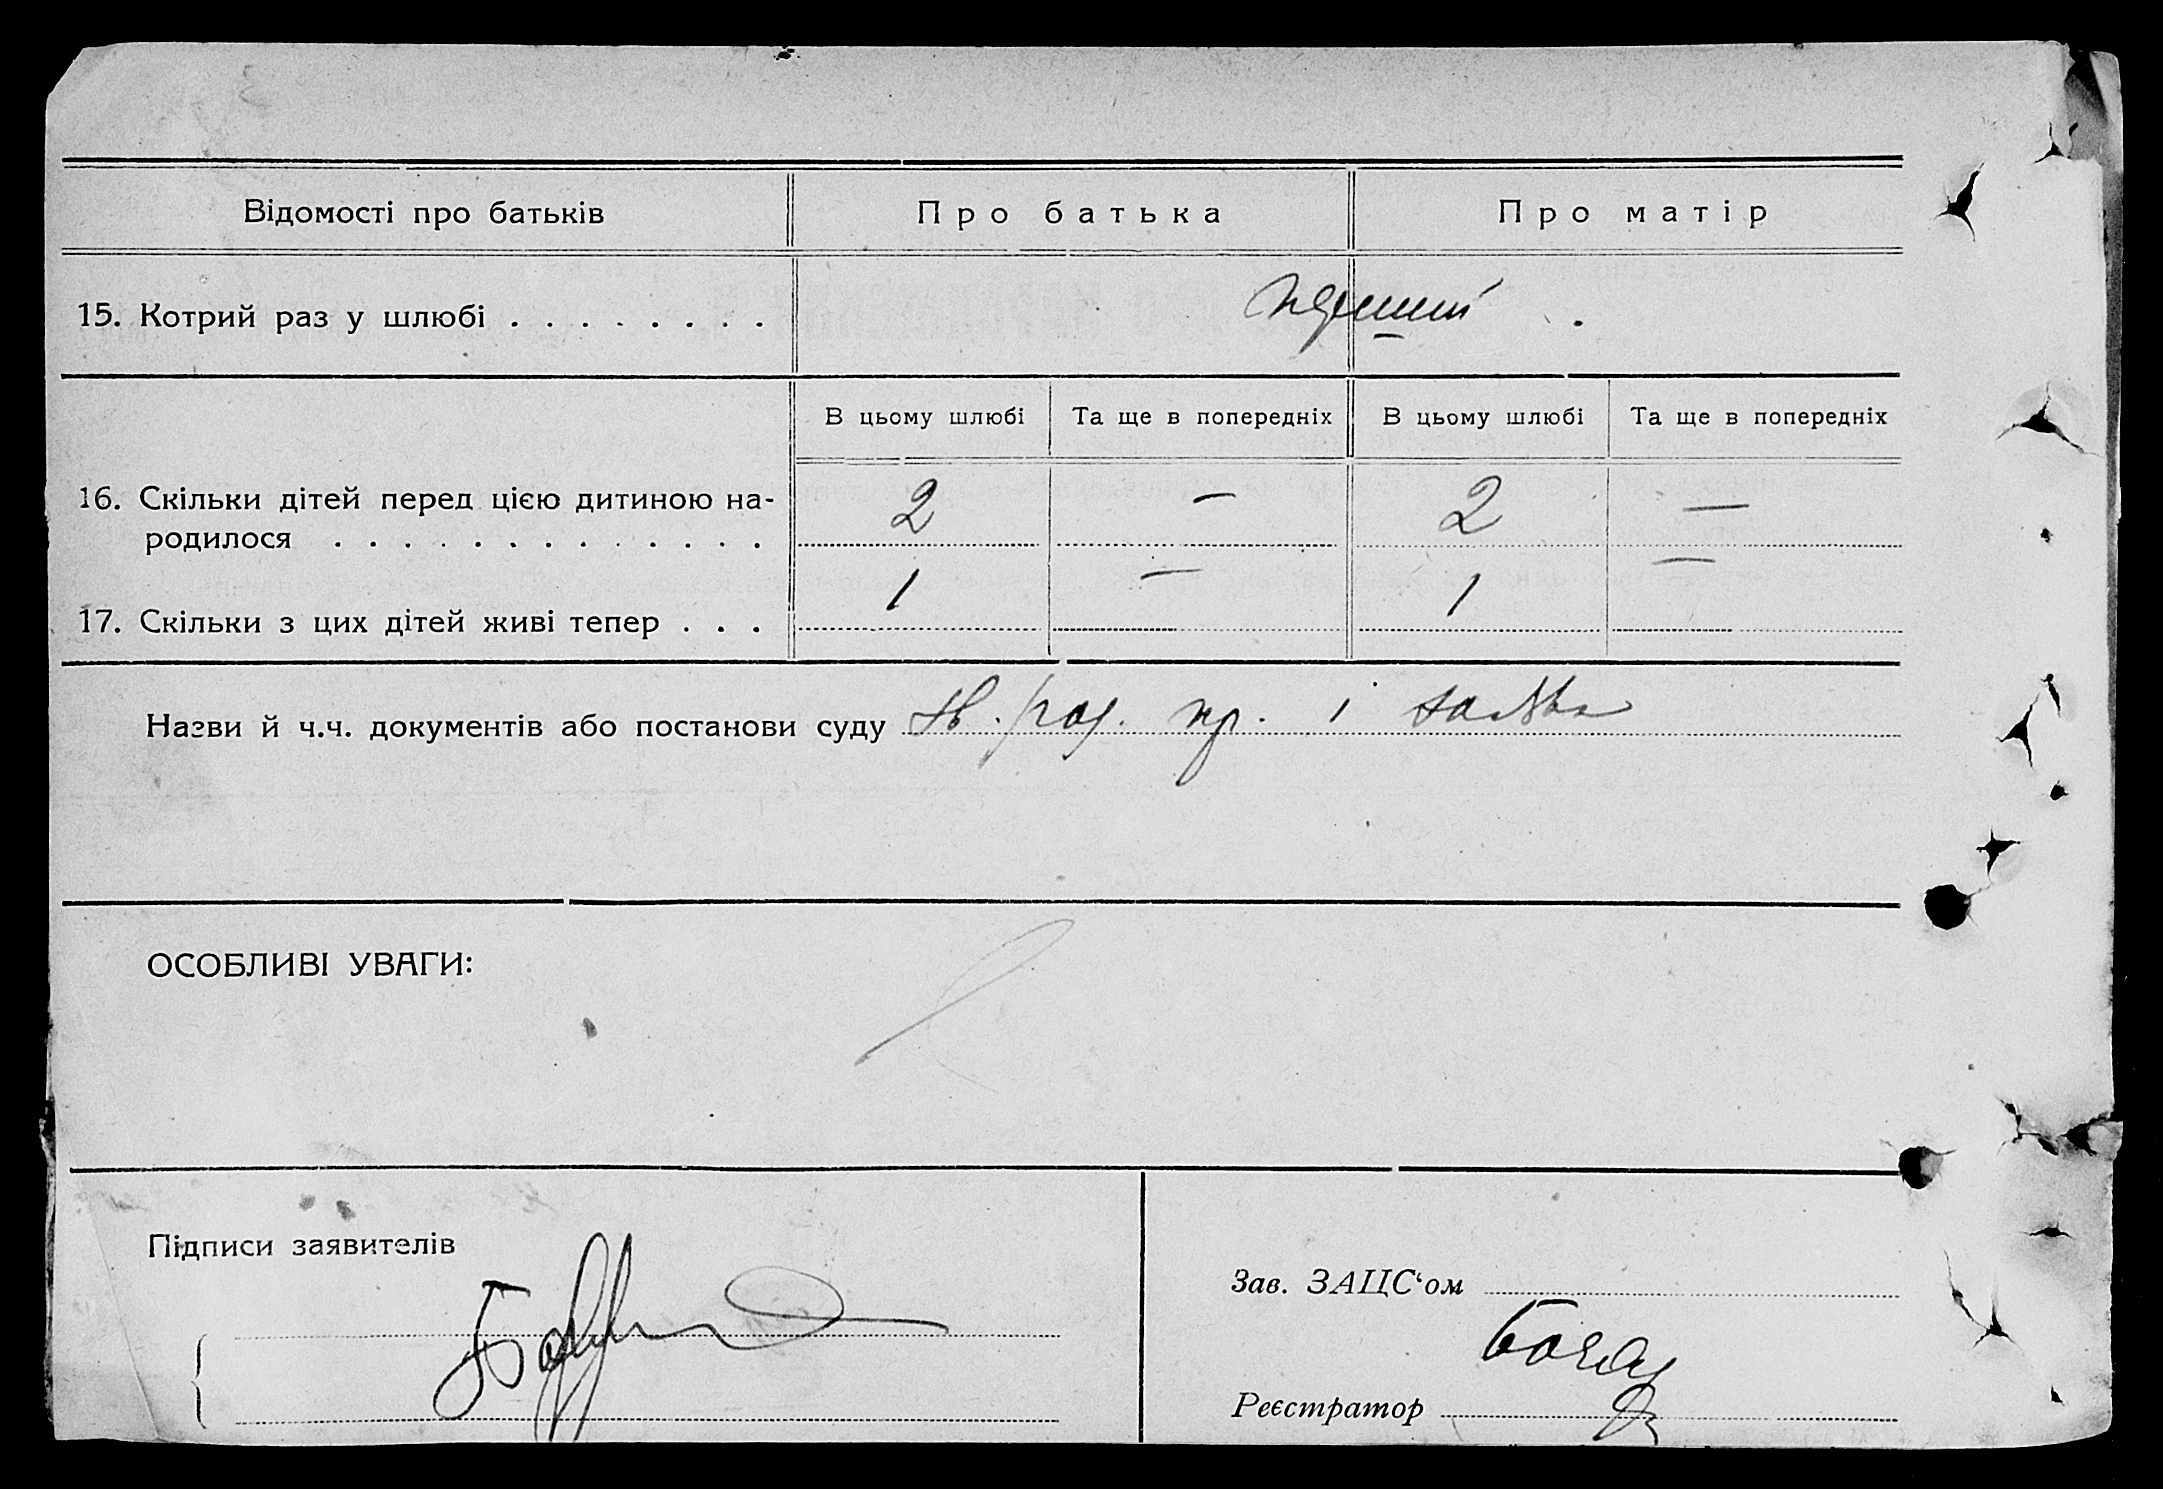 Відомості про батьків
Про батька
Про матір
15. Котрий раз у шлюбі . . . . . . . .
перший
В цьому шлюбі
Та ще в попередніх
В цьому шлюбі
Та ще в попередніх
16. Скільки дітей перед цією дитиною на-
родилося . . . . . . . . . . . . .
2 — 2 —
17. Скільки з цих дітей живі тепер . . .
1 — 1 —
Назви й ч.ч. документів або постанови суду
ОСОБЛИВІ УВАГИ:
Підписи заявителів
Зав. ЗАЦС‘ом
Реєстратор